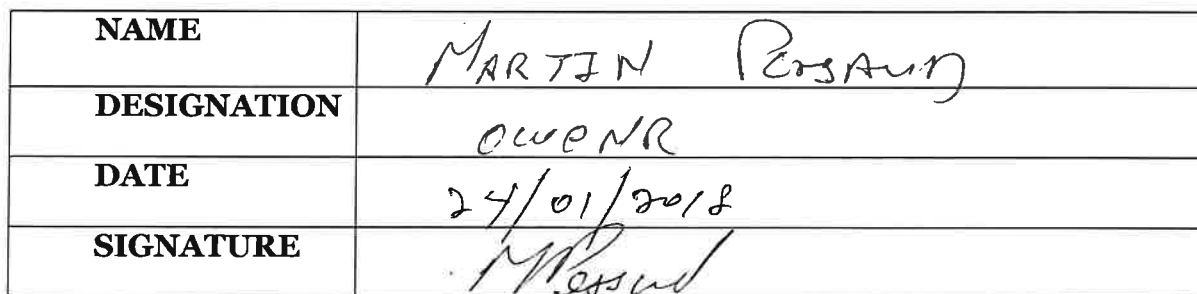 NAME MARTIN Persaud
DESIGNATION OWeNR
DATE 24/01/2018
SIGNATURE MPersaud